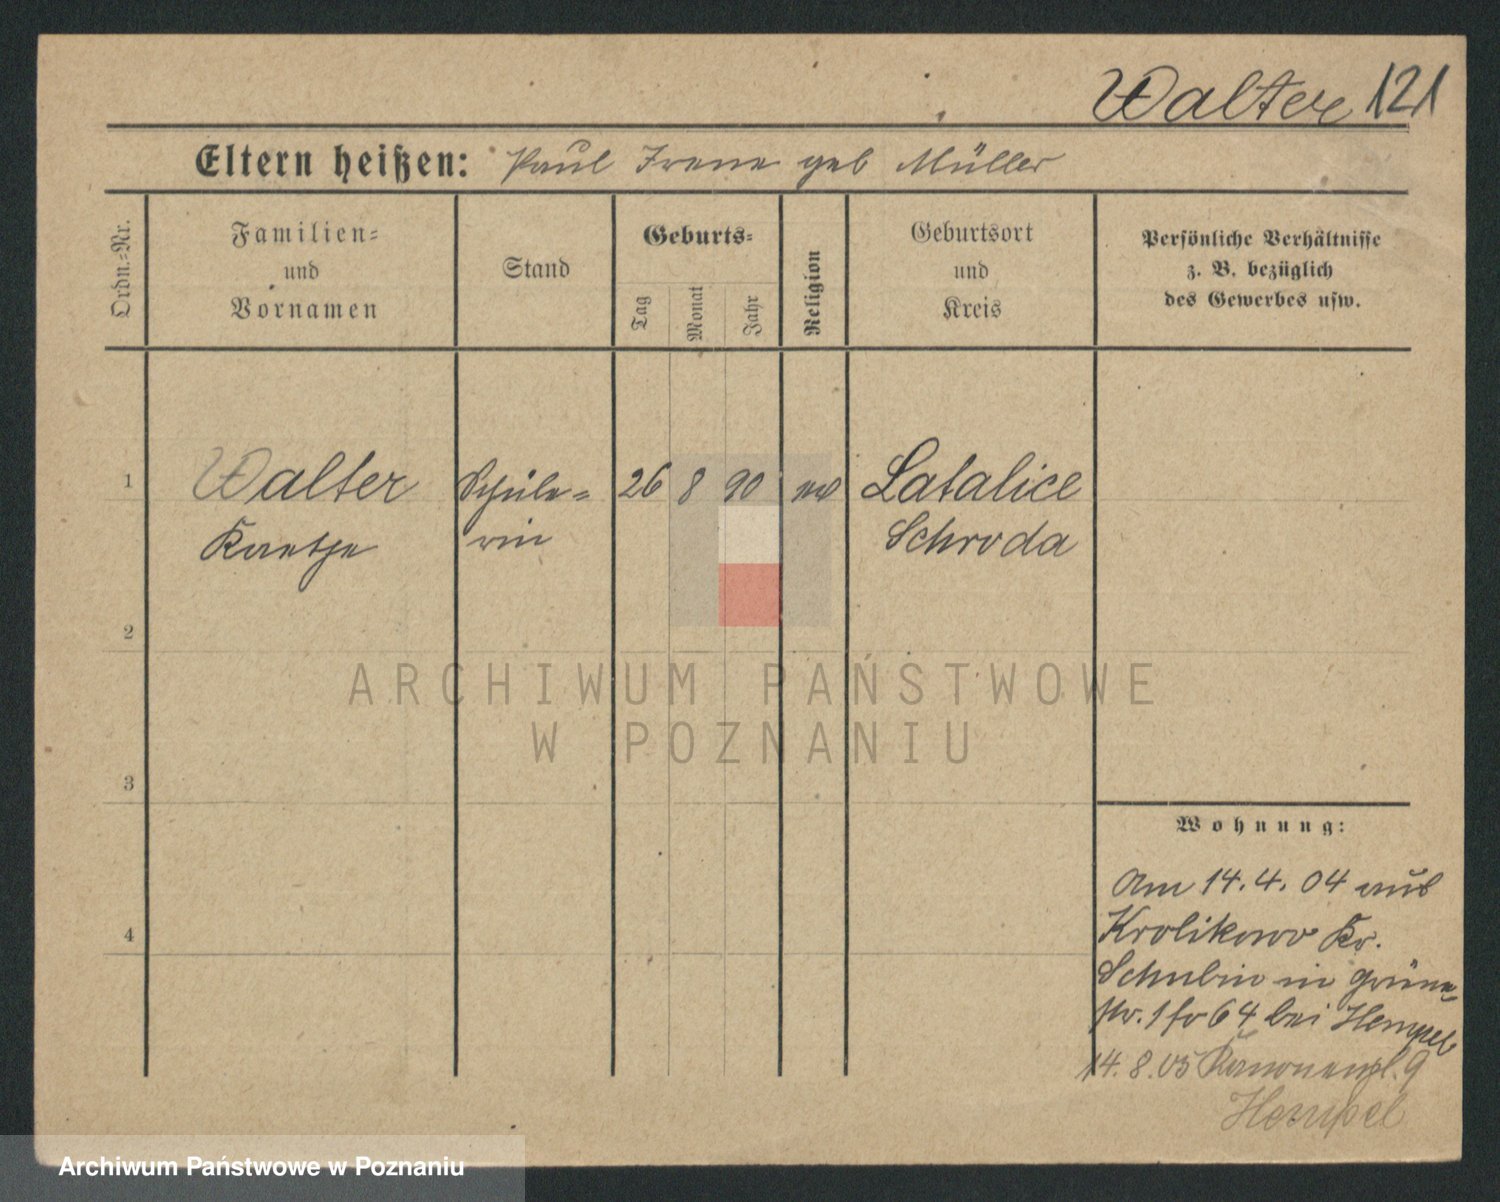 Walter 121
Eltern heißen: Paul Irene geb Müller
Ordn.-Nr.
Familien-
und
Vornamen
Stand
Geburts-
Tag
Monat
Jahr
Religion
Geburtsort
und
Kreis
Persönliche Verhältnisse
z. B. bezüglich
des Gewerbes usw.
1 Walter Schüle- 26 8 90 ev Latalice
Kaethe rin Schroda
2
3
4
Wohnung:
Am 14.4.04 aus
Krolikowo Kr.
Schubin in Grüne-
str. 1 fr 64 bei Hempel
14.8.05 Kanonenpl. 9
Hempel
ARCHIWUM PAŃSTWOWE
W POZNANIU
Archiwum Państwowe w Poznaniu